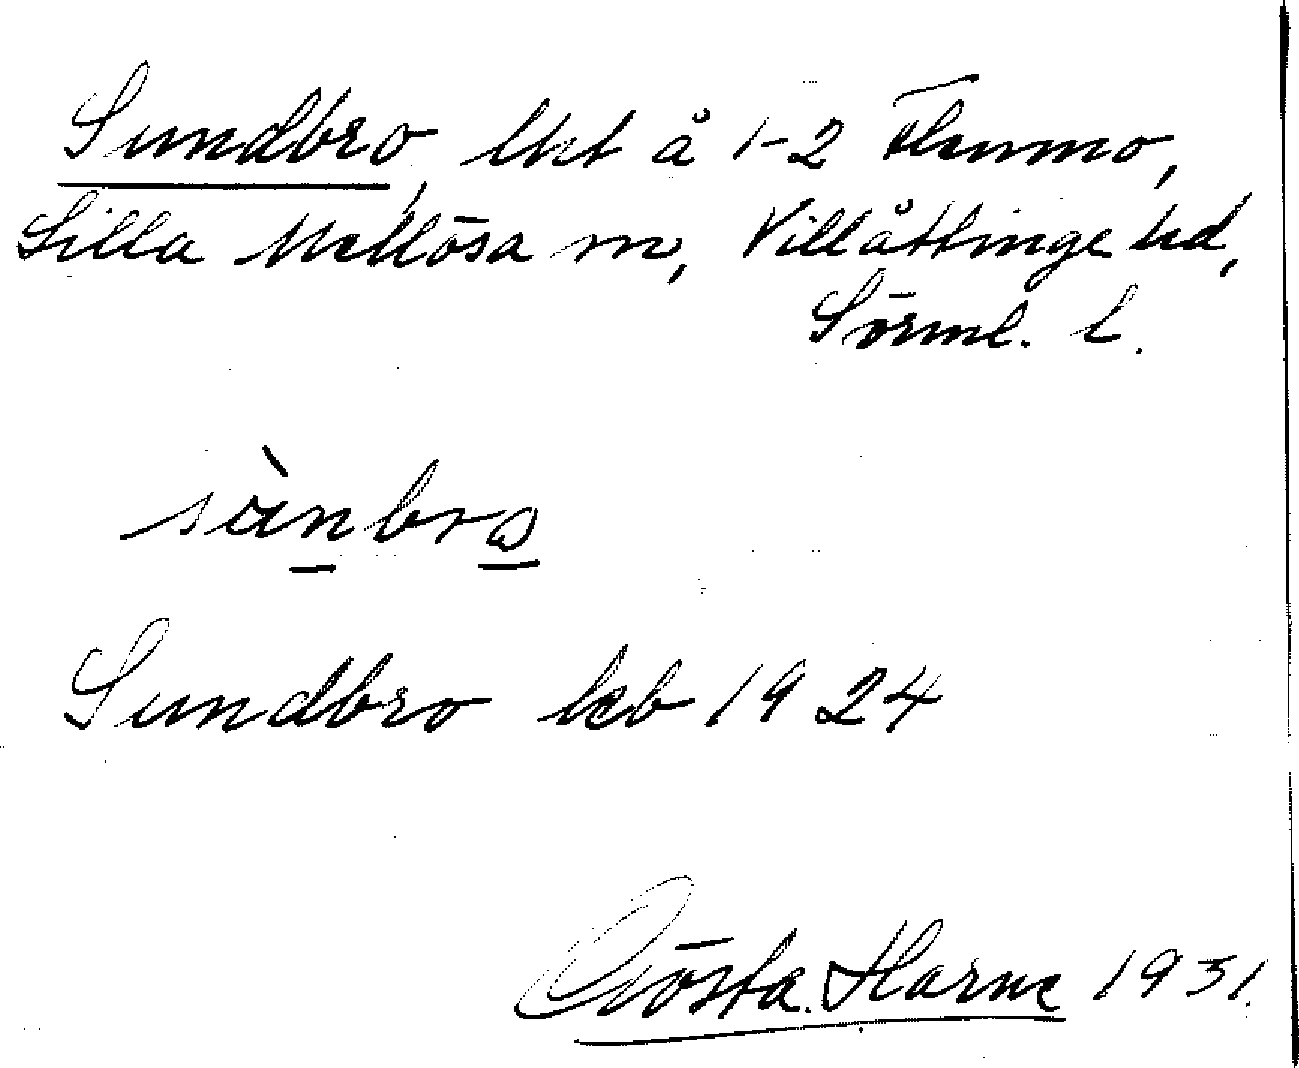 Sundbro, lht å 1-2 Flenmo,
Lilla Mellösa sn, Villåttinge hd,
Sörml. l.
sànbro
Sundbro kb 1924
Gösta Harne 1931.